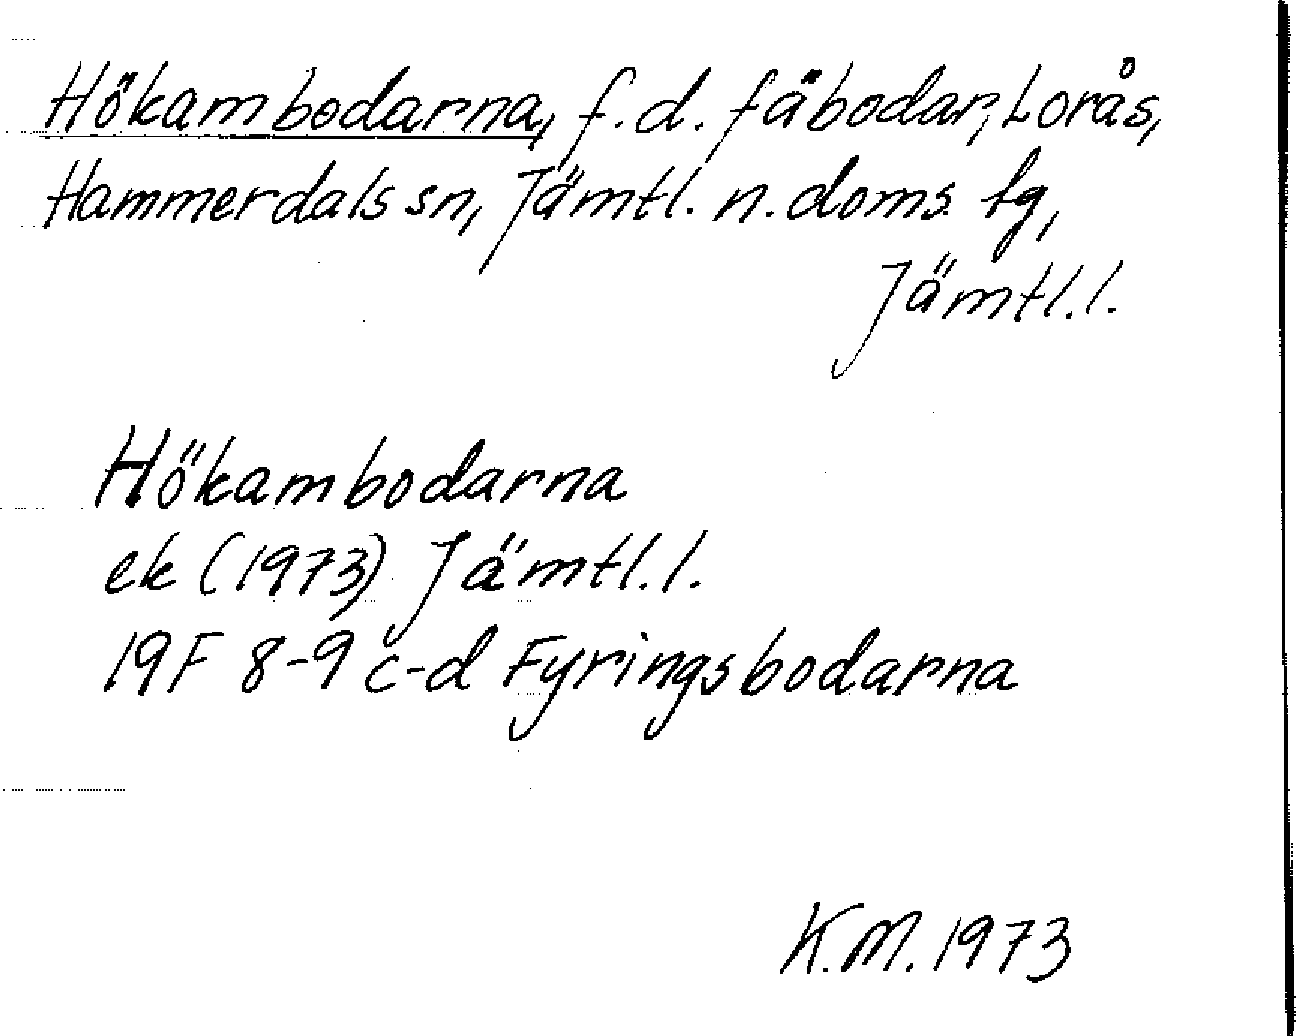 Hökambodarna, f.d. fäbodar, Lorås,
Hammerdals sn, Jämtl. n. doms. tg,
Jämtl. l.
Hökambodarna
ek (1973) Jämtl. l.
19F 8-9 c-d Fyringsbodarna
K.M. 1973